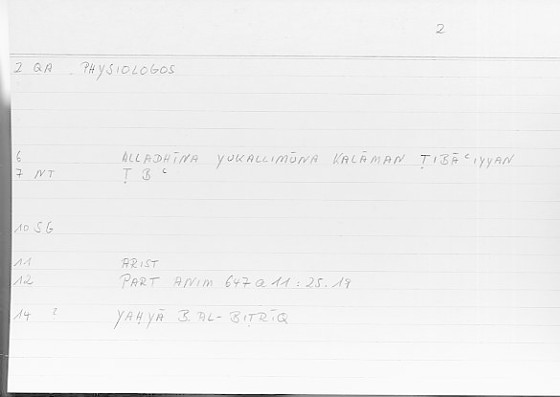 2
2 QA PHYSIOLOGOS
6 ALLADHĪNA YUKALLIMŪNA KALĀMAN ṬIBĀʿIYYAN
7 NT Ṭ B ʿ
10 SG
11 ARIST
12 PART ANIM 647 a 11 : 25.19
14 ? YAḤYĀ B. AL-BIṬRĪQ